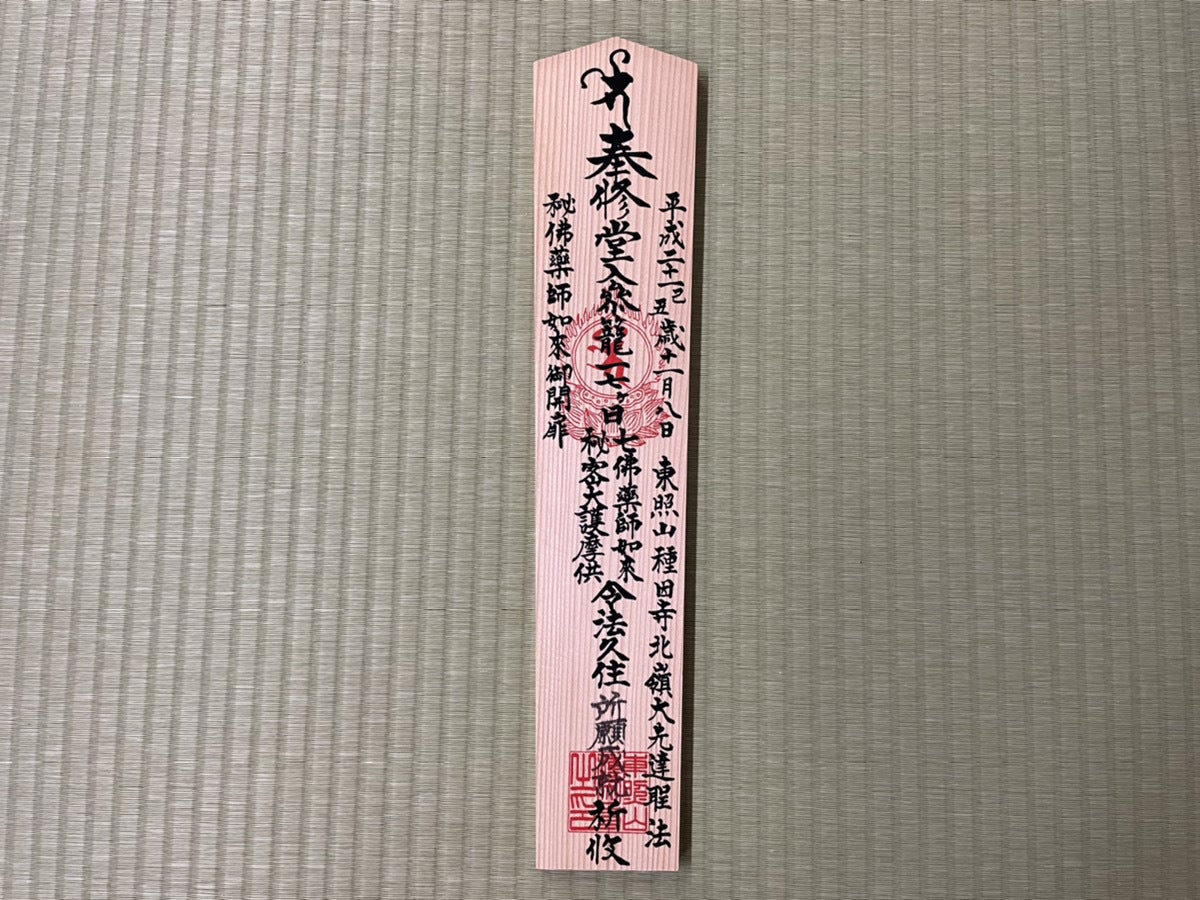 平成二十一己丑歳十一月八日 東照山種田寺北嶺大先達聖法
奉修堂入参籠一七ヶ日
七佛藥師如來
秘密大護摩供
令法久住所願成就祈攸
秘佛藥師如來御開扉